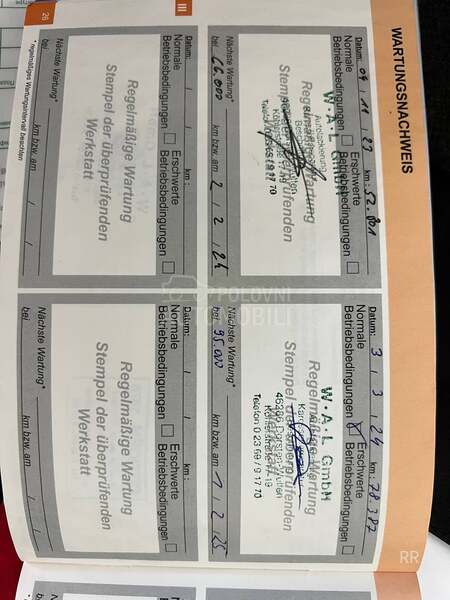 WARTUNGSNACHWEIS
Datum: 09 / 11 / 22 km: 52.801
Normale Betriebsbedingungen
Erschwerte Betriebsbedingungen
W·A·L GmbH
Regelmäßige Wartung
Stempel der überprüfenden
Nächste Wartung*
bei 66.000 km bzw. am 2 / 2 / 24
Datum: 3 / 3 / 24 km: 78 387
Normale Betriebsbedingungen
Erschwerte Betriebsbedingungen
W·A·L GmbH
Regelmäßige Wartung
Stempel der überprüfenden
Telefon 0 23 69 / 9 17 70
Nächste Wartung*
bei 95.000 km bzw. am 1 / 2 / 25
Datum: / / km:
Normale Betriebsbedingungen
Erschwerte Betriebsbedingungen
Regelmäßige Wartung
Stempel der überprüfenden
Werkstatt
Nächste Wartung*
bei km bzw. am / /
Datum: / / km:
Normale Betriebsbedingungen
Erschwerte Betriebsbedingungen
Regelmäßige Wartung
Stempel der überprüfenden
Werkstatt
Nächste Wartung*
bei km bzw. am / /
* regelmäßiges Wartungsintervall beachten
26
III
POLOVNI
AUTOMOBILI
RR